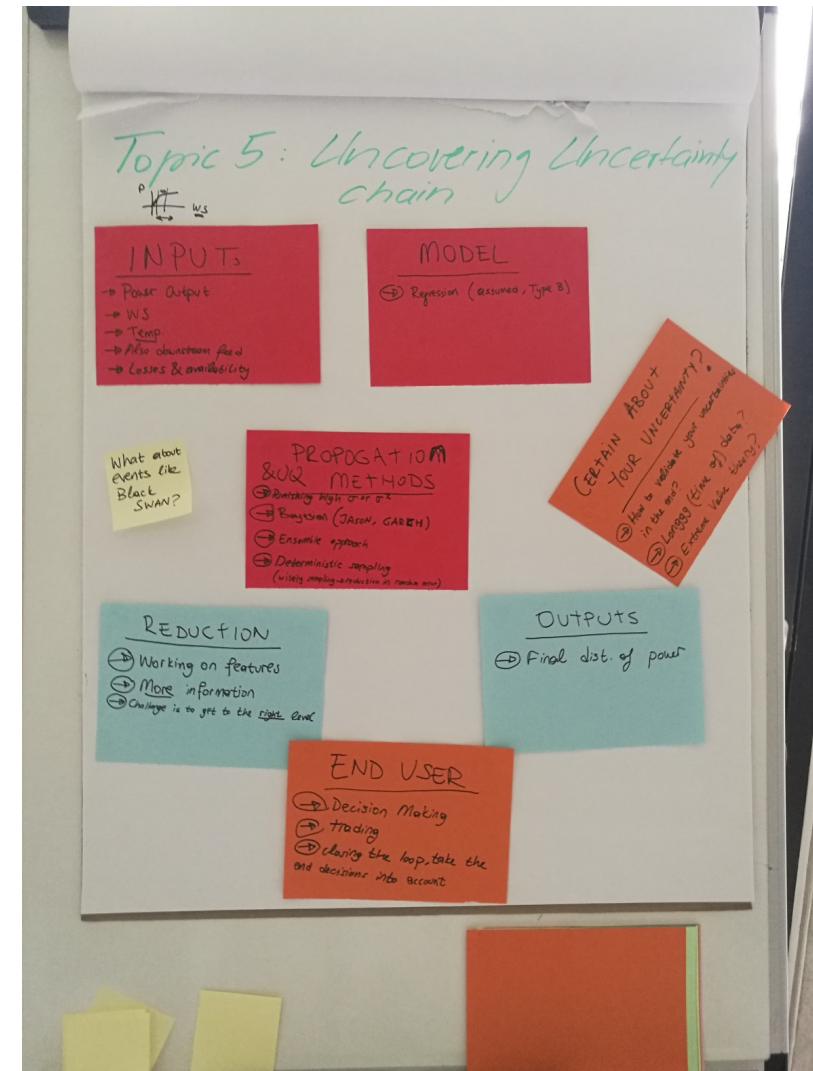 Topic 5: Uncovering Uncertainty
chain
P
WS
INPUTS
→ Power Output
→ WS
→ Temp.
→ Also downstream feed
→ Losses & availability
MODEL
→ Regression (assumed, Type B)
CERTAIN ABOUT
YOUR UNCERTAINTY?
→ How to validate your uncertainties
in the end?
→ Longgg (time of) data?
→ Extreme value theory?
What about
events like
Black
SWAN?
PROPOGATION
&UQ METHODS
→ Punishing high σ or σ²
→ Bayesian (JASON, GARETH)
→ Ensemble approach
→ Deterministic sampling
(wisely sampling
REDUCTION
→ Working on features
→ More information
→ Challenge is to get to the right level
OUTPUTS
→ Final dist. of power
END USER
→ Decision Making
→ trading
→ closing the loop, take the
end decisions into account